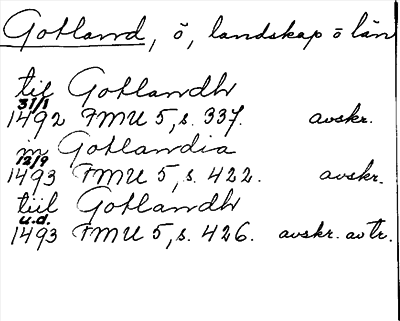 Gotland, ö, landskap o län
til Gotlandh
31/1
1492 FMU 5, s. 337. avskr.
in Gotlandia
12/9
1493 FMU 5, s. 422. avskr.
tiil Gotlandh
u.d.
1493 FMU 5, s. 426. avskr. av tr.